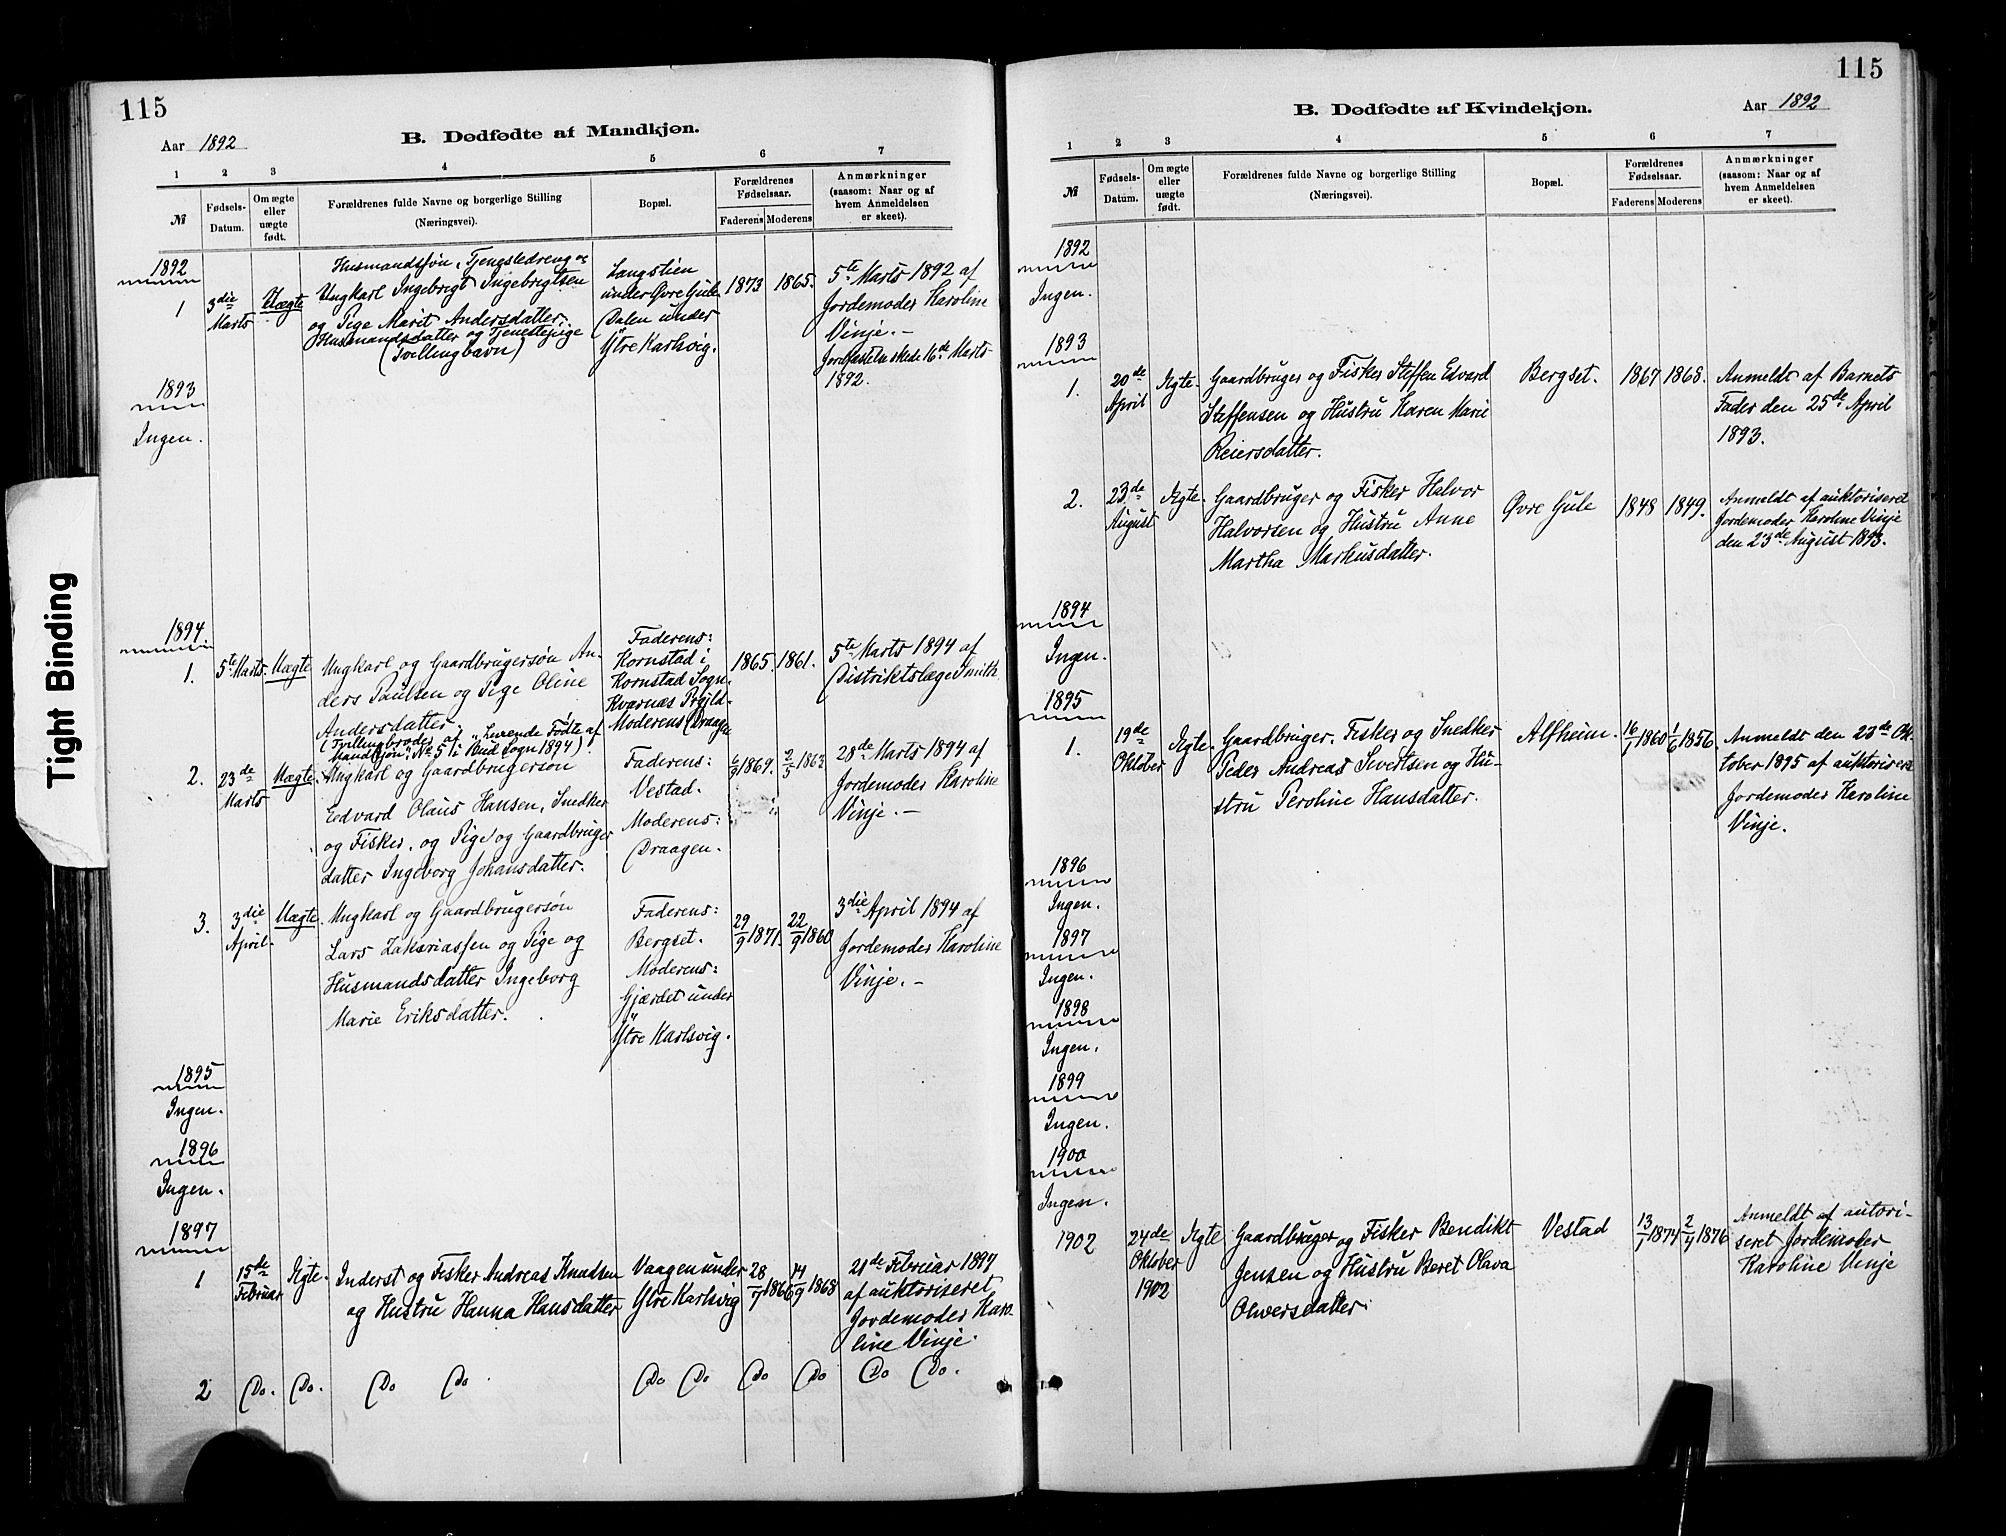 115
Aar 1892
B. Dødfødte af Mandkjøn.
1 2 3 4 5 6 7
№
Fødsels-Datum.
Om ægte eller uægte født.
Forældrenes fulde Navne og borgerlige Stilling
(Næringsvei).
Bopæl.
Forældrenes Fødselsaar.
Faderens Moderens
Anmærkninger
(saasom: Naar og af
hvem Anmeldelsen
er skeet).
1892
1
3die
Marts
Uægte
Husmandssøn, Tjenestedreng og
Ungkarl Ingebrigt Ingebrigtsen
og Pige Marit Andersdatter,
Husmandsdatter og Tjenestepige
(Tvillingbarn)
Langstien
under Øvre Gule
Dalen under
Ytre Karlsvig.
1873
1865.
5te Marts 1892 af
Jordemoder Karoline
Vinje. –
Jordfæstelse skede 16de Marts
1892.
1893
Ingen.
1894.
1.
5te Marts.
Uægte
Ungkarl og Gaardbrugersøn An-
ders Paulsen og Pige Oline
Andersdatter.
(Tvillingbroder af "Levende Fødte af
Mandkjøn" No 5 i Bud Sogn 1894)
Faderens:
Kornstad i
Kornstad Sogn.
Kværnæs Prgjld.
Moderens Draagen
1865.
1861.
5te Marts 1894 af
Distriktslæge Smith
2.
23de
Marts
Uægte.
Ungkarl og Gaardbrugersøn
Edvard Olaus Hansen, Snedker
og Fisker, og Pige og Gaardbruger
datter Ingeborg Johansdatter.
Faderens:
Vestad.
Moderens:
Draagen.
6/9 1869.
2/5 1863
28de Marts 1894 af
Jordemoder Karoline
Vinje. –
3.
3die
April.
Uægte.
Ungkarl og Gaardbrugersøn
Lars Zakariassen og Pige og
Husmandsdatter Ingeborg
Marie Eriksdatter.
Faderens:
Bergset.
Moderens:
Gjærdet under
Ytre Karlsvig.
29/9 1871.
22/9 1860
3die April 1894 af
Jordemoder Karoline
Vinje. –
1895
Ingen.
1896
Ingen.
1897
1
15de
Februar
Ægte.
Inderst og Fisker Andreas Knudsen
og Hustru Hanna Hansdatter
Vaagen under
Ytre Karlsvig
28/7 1866
14/9 1868
21de Februar 1897
af auktoriseret
Jordemoder Karo-
line Vinje.
2 Do. Do. Do Do Do Do Do Do Do Do.
115
Aar 1892
B. Dødfødte af Kvindekjøn.
1 2 3 4 5 6 7
№
Fødsels-Datum.
Om ægte eller uægte født.
Forældrenes fulde Navne og borgerlige Stilling
(Næringsvei).
Bopæl.
Forældrenes Fødselsaar.
Faderens Moderens
Anmærkninger
(saasom: Naar og af
hvem Anmeldelsen
er skeet).
1892
Ingen.
1893
1.
20de
April
Ægte.
Gaardbruger og Fisker Steffen Edvard
Steffensen og Hustru Karen Marie
Reiersdatter.
Bergset.
1867
1868.
Anmeldt af Barnets
Fader den 25de April
1893.
2.
23de
August
Ægte.
Gaardbruger og Fisker Halvor
Halvorsen og Hustru Anne
Martha Markusdatter.
Øvre Gule
1848
1849.
Anmeldt af auktoriseret
Jordemoder Karoline Vinje
den 23de August 1893.
1894
Ingen.
1895
1.
19de
Oktober
Ægte.
Gaardbruger, Fisker og Snedker
Peder Andreas Sivertsen og Hu-
stru Peroline Hansdatter.
Alfheim.
16/1 1860
1/6 1856.
Anmeldt den 23de Ok-
tober 1895 af auktoriseret
Jordemoder Karoline
Vinje.
1896
Ingen.
1897
Ingen.
1898
Ingen.
1899
Ingen.
1900
Ingen.
1902
24de
Oktober
1902
Ægte
Gaardbruger og Fisker Bendikt
Jensen og Hustru Beret Olava
Oliversdatter.
Vestad
13/1 1874
2/4 1876
Anmeldt af autori-
seret Jordemoder
Karoline Vinje
Tight Binding